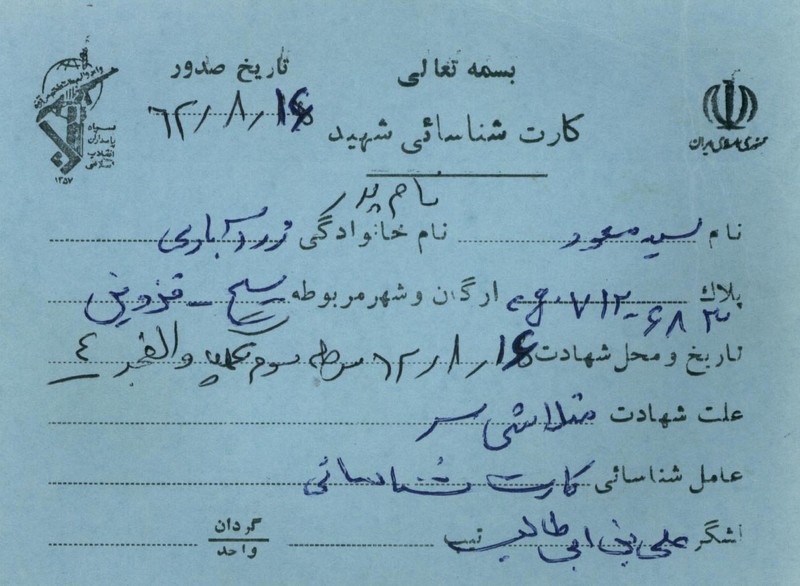 بسمه تعالی
تاریخ صدور
۶۲/۸/۱۶
کارت شناسائی شهید
جمهوری اسلامی ایران
سپاه
پاسداران
انقلاب
اسلامی
۱۳۵۷
نام پدر
نام سید مسعود نام خانوادگی زرآبادی
پلاک ارگان و شهر مربوطه بسیج - قزوین
تاریخ و محل شهادت ۶۲/۸/۱۶ مرحله سوم والفجر ۴
علت شهادت متلاشی سر
عامل شناسائی کارت شناسائی
لشگر علی بن ابی طالب تیپ گردان
واحد